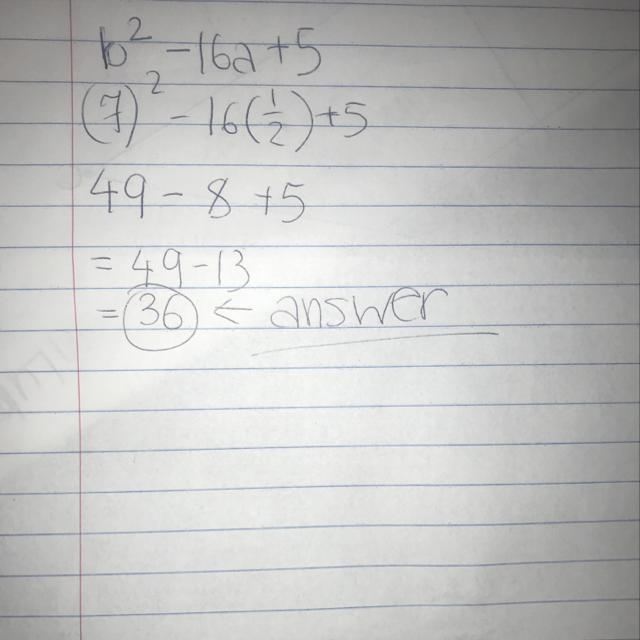 b² - 16a + 5
(7)² - 16(1/2) + 5
49 - 8 + 5
= 49 - 13
= 36 ← answer